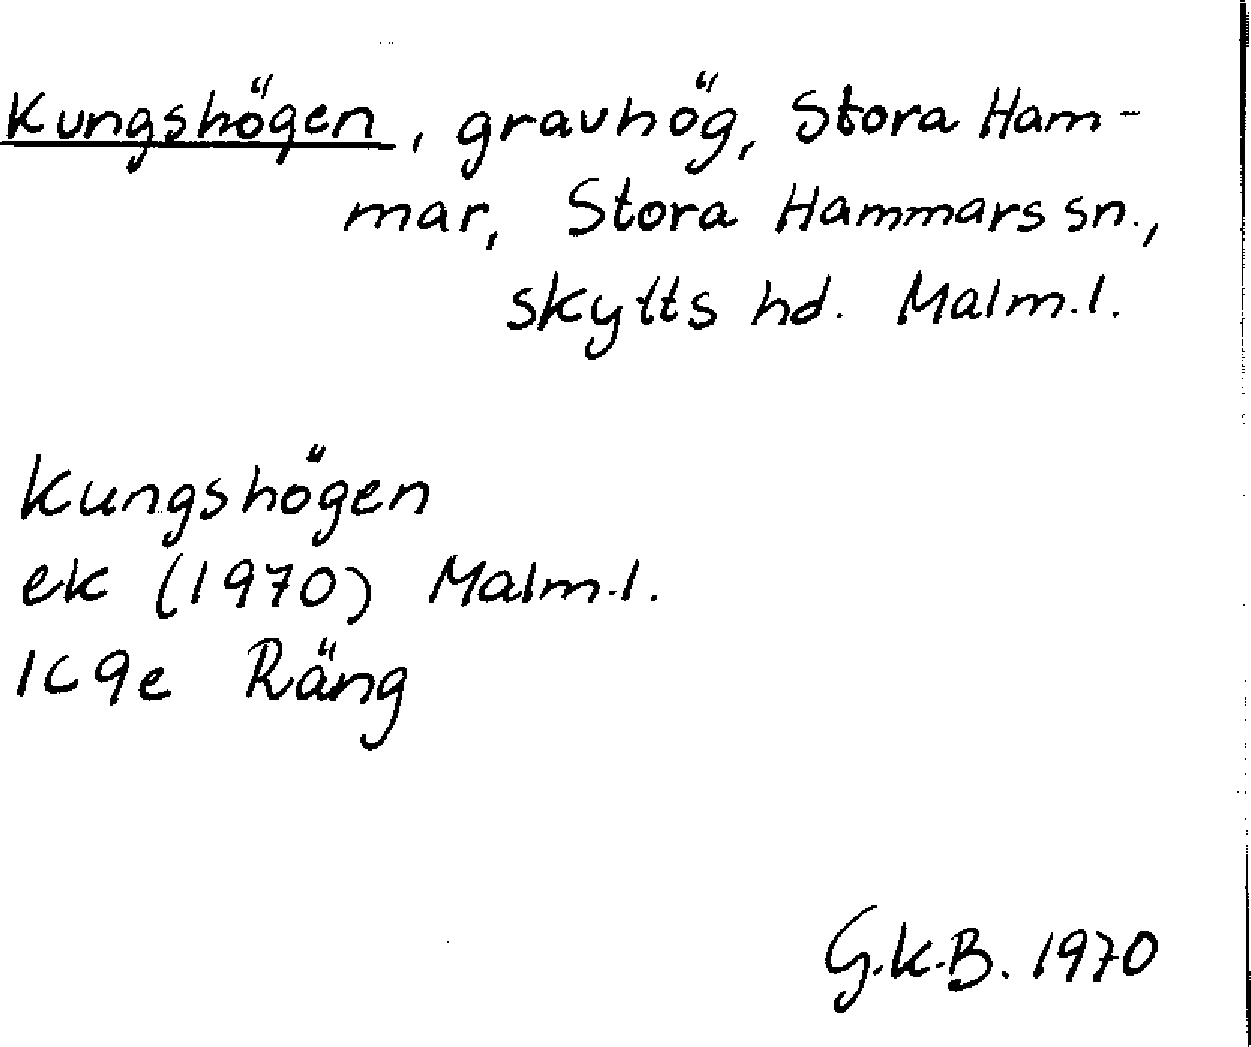 Kungshögen, gravhög, Stora Ham-
mar, Stora Hammars sn.,
Skytts hd. Malm.l.
Kungshögen
ek (1970) Malm.l.
1C9e Räng
G.K.B. 1970